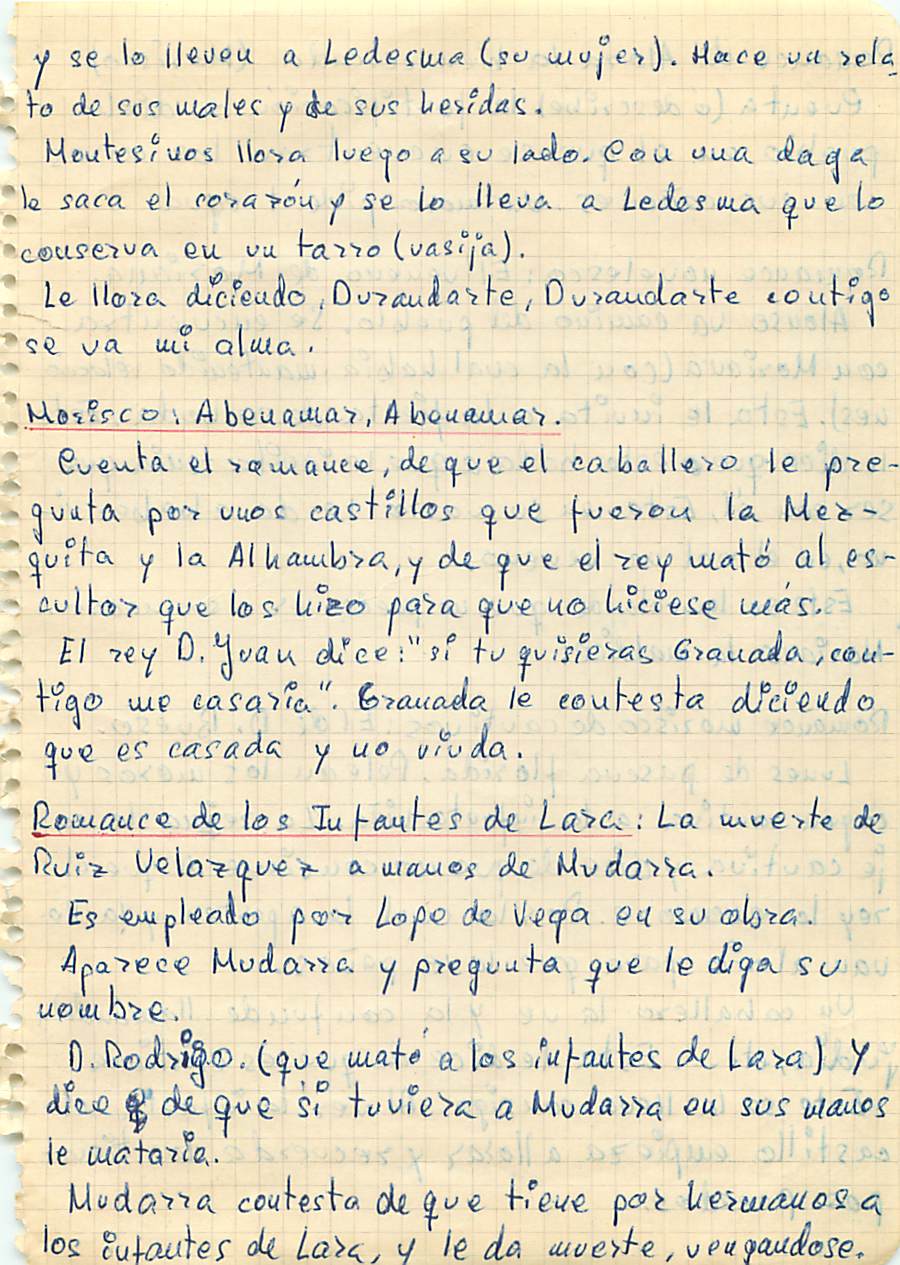 y se lo lleven a Ledesma (su mujer). Hace un rela
to de sus males y de sus heridas.
Montesinos llora luego a su lado. Con una daga
le saca el corazón y se lo lleva a Ledesma que lo
conserva en un tarro (vasija).
Le llora diciendo, Durandarte, Durandarte contigo
se va mi alma.
Morisco: Abenamar, Abenamar.
Cuenta el romance, de que el caballero le pre-
gunta por unos castillos que fueron la Mez-
quita y la Alhambra, y de que el rey mató al es-
cultor que los hizo para que no hiciese más.
El rey D. Juan dice: "si tu quisieras Granada, con-
tigo me casaría". Granada le contesta diciendo
que es casada y no viuda.
Romance de los Infantes de Lara: La muerte de
Ruiz Velazquez a manos de Mudarra.
Es empleado por Lope de Vega en su obra.
Aparece Mudarra y pregunta que le diga su
nombre.
D. Rodrigo. (que mató a los infantes de Lara) y
dice q de que si tuviera a Mudarra en sus manos
le mataría.
Mudarra contesta de que tiene por hermanos a
los infantes de Lara, y le da muerte, vengandose.